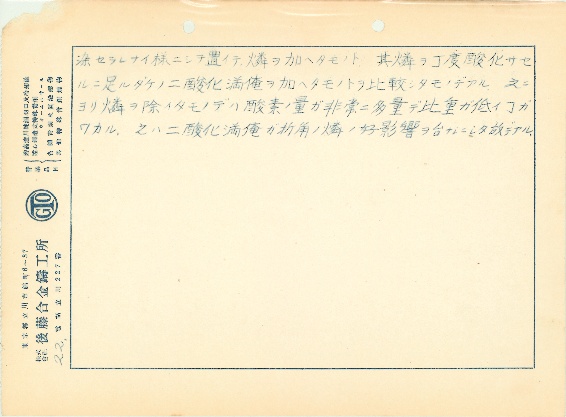 セラレナイ様ニシテ置イテ、燐ヲ加ヘタモノト、其燐ヲ丁度酸化サセ
ルニ足ルダケノ二酸化満俺ヲ加ヘタモノトヲ比較シタモノデアル。之ニ
ヨリ燐ヲ除イタモノデハ酸素ノ量ガ非常ニ多量デ比重ガ低イコトガ
ワカル。之ハ二酸化満俺ガ折角ノ燐ノ好影響ヲ台ナシニシタ故デアル。
GTO
東京都立川市
株式会社 後藤合金鑄工所
電話立川227番
22.